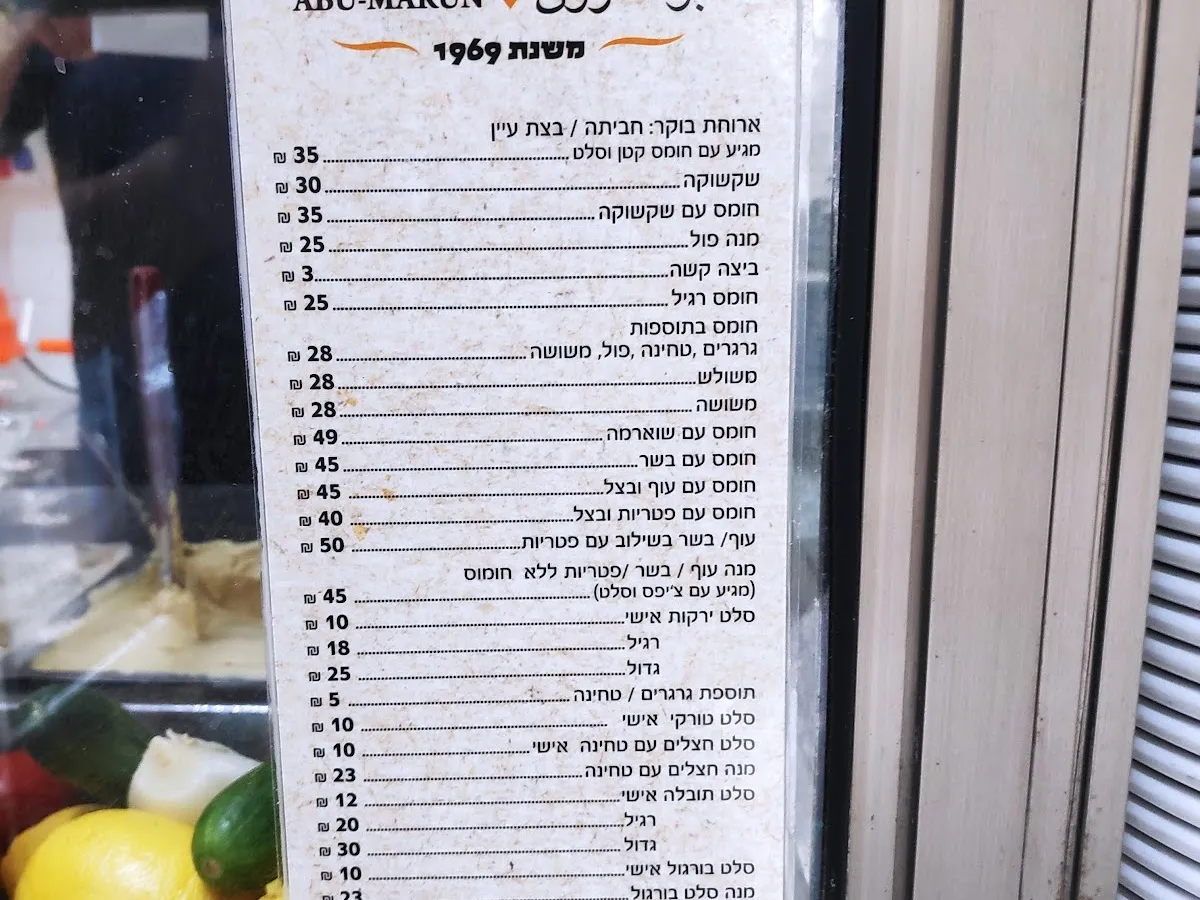 ABU-MARUN
משנת 1969
ארוחת בוקר: חביתה / בצת עיין
מגיע עם חומס קטן וסלט 35 ₪
שקשוקה 30 ₪
חומס עם שקשוקה 35 ₪
מנה פול 25 ₪
ביצה קשה 3 ₪
חומס רגיל 25 ₪
חומס בתוספות
גרגרים ,טחינה ,פול, משושה 28 ₪
משולש 28 ₪
משושה 28 ₪
חומס עם שווארמה 49 ₪
חומס עם בשר 45 ₪
חומס עם עוף ובצל 45 ₪
חומס עם פטריות ובצל 40 ₪
עוף/ בשר בשילוב עם פטריות 50 ₪
מנה עוף / בשר /פטריות ללא חומוס
(מגיע עם צ'יפס וסלט) 45 ₪
סלט ירקות אישי 10 ₪
רגיל 18 ₪
גדול 25 ₪
תוספת גרגרים / טחינה 5 ₪
סלט טורקי אישי 10 ₪
סלט חצלים עם טחינה אישי 10 ₪
מנה חצלים עם טחינה 23 ₪
סלט תובלה אישי 12 ₪
רגיל 20 ₪
גדול 30 ₪
סלט בורגול אישי 10 ₪
מנה סלט בורגול 23 ₪